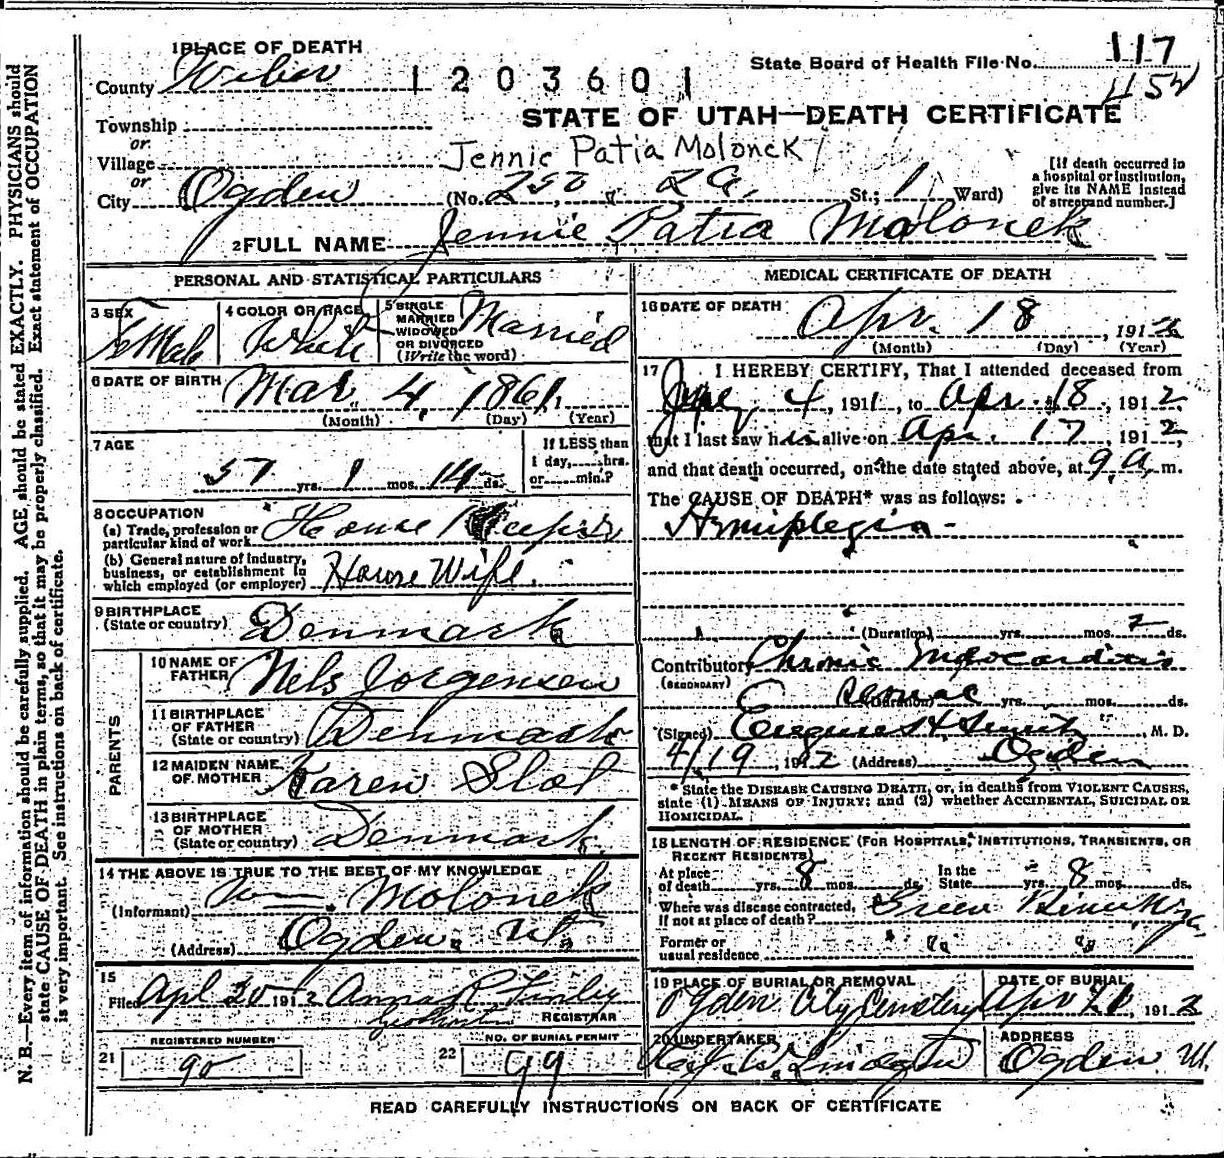 1 PLACE OF DEATH
County Weber
1203601
State Board of Health File No. 117
452
STATE OF UTAH—DEATH CERTIFICATE
Township
or
Village
Jennie Patia Molonek
or
City Ogden (No. 252, St.; 1 Ward)
[If death occurred in
a hospital or institution,
give its NAME instead
of street and number.]
2 FULL NAME Jennie Patia Molonek
PERSONAL AND STATISTICAL PARTICULARS
3 SEX Female
4 COLOR OR RACE White
5 SINGLE
MARRIED
WIDOWED
OR DIVORCED
(Write the word)
Married
6 DATE OF BIRTH Mar. 4, 1861
(Month) (Day) (Year)
7 AGE
57 yrs. 1 mos. 14 ds.
If LESS than
1 day, hrs.
or min.?
8 OCCUPATION
(a) Trade, profession or
particular kind of work
House Keeper
(b) General nature of industry,
business, or establishment in
which employed (or employer)
House Wife.
9 BIRTHPLACE
(State or country)
Denmark
PARENTS
10 NAME OF
FATHER
Nels Jorgensen
11 BIRTHPLACE
OF FATHER
(State or country)
Denmark
12 MAIDEN NAME
OF MOTHER
Karen Slot
13 BIRTHPLACE
OF MOTHER
(State or country)
Denmark
14 THE ABOVE IS TRUE TO THE BEST OF MY KNOWLEDGE
(Informant) Wm. Molonek
(Address) Ogden, Ut.
15
Filed Apl 30 1912 Anna R. Finley
REGISTRAR
REGISTERED NUMBER
21 90
NO. OF BURIAL PERMIT
22 99
MEDICAL CERTIFICATE OF DEATH
16 DATE OF DEATH
Apr. 18, 1912
(Month) (Day) (Year)
17 I HEREBY CERTIFY, That I attended deceased from
4, 1911, to Apr. 18, 1912,
that I last saw her alive on Apr. 17, 1912,
and that death occurred, on the date stated above, at 9 a. m.
The CAUSE OF DEATH* was as follows:
Hemiplegia
(Duration) yrs. mos. 2 ds.
Contributory Chronic Myocarditis
(SECONDARY)
(Duration) yrs. mos. ds.
(Signed) Eugene H. Smith, M. D.
4/19, 1912 (Address) Ogden
* State the DISEASE CAUSING DEATH, or, in deaths from VIOLENT CAUSES,
state (1) MEANS OF INJURY; and (2) whether ACCIDENTAL, SUICIDAL OR
HOMICIDAL.
18 LENGTH OF RESIDENCE (FOR HOSPITALS, INSTITUTIONS, TRANSIENTS, OR
RECENT RESIDENTS)
At place
of death yrs. 8 mos. ds.
In the
State yrs. 8 mos. ds.
Where was disease contracted,
if not at place of death? Green
Former or
usual residence
19 PLACE OF BURIAL OR REMOVAL
Ogden City Cemetery
DATE OF BURIAL
Apr 21, 1912
20 UNDERTAKER
ADDRESS
Ogden Ut.
READ CAREFULLY INSTRUCTIONS ON BACK OF CERTIFICATE
N. B.—Every item of information should be carefully supplied. AGE should be stated EXACTLY. PHYSICIANS should
state CAUSE OF DEATH in plain terms, so that it may be properly classified. Exact statement of OCCUPATION
is very important. See instructions on back of certificate.